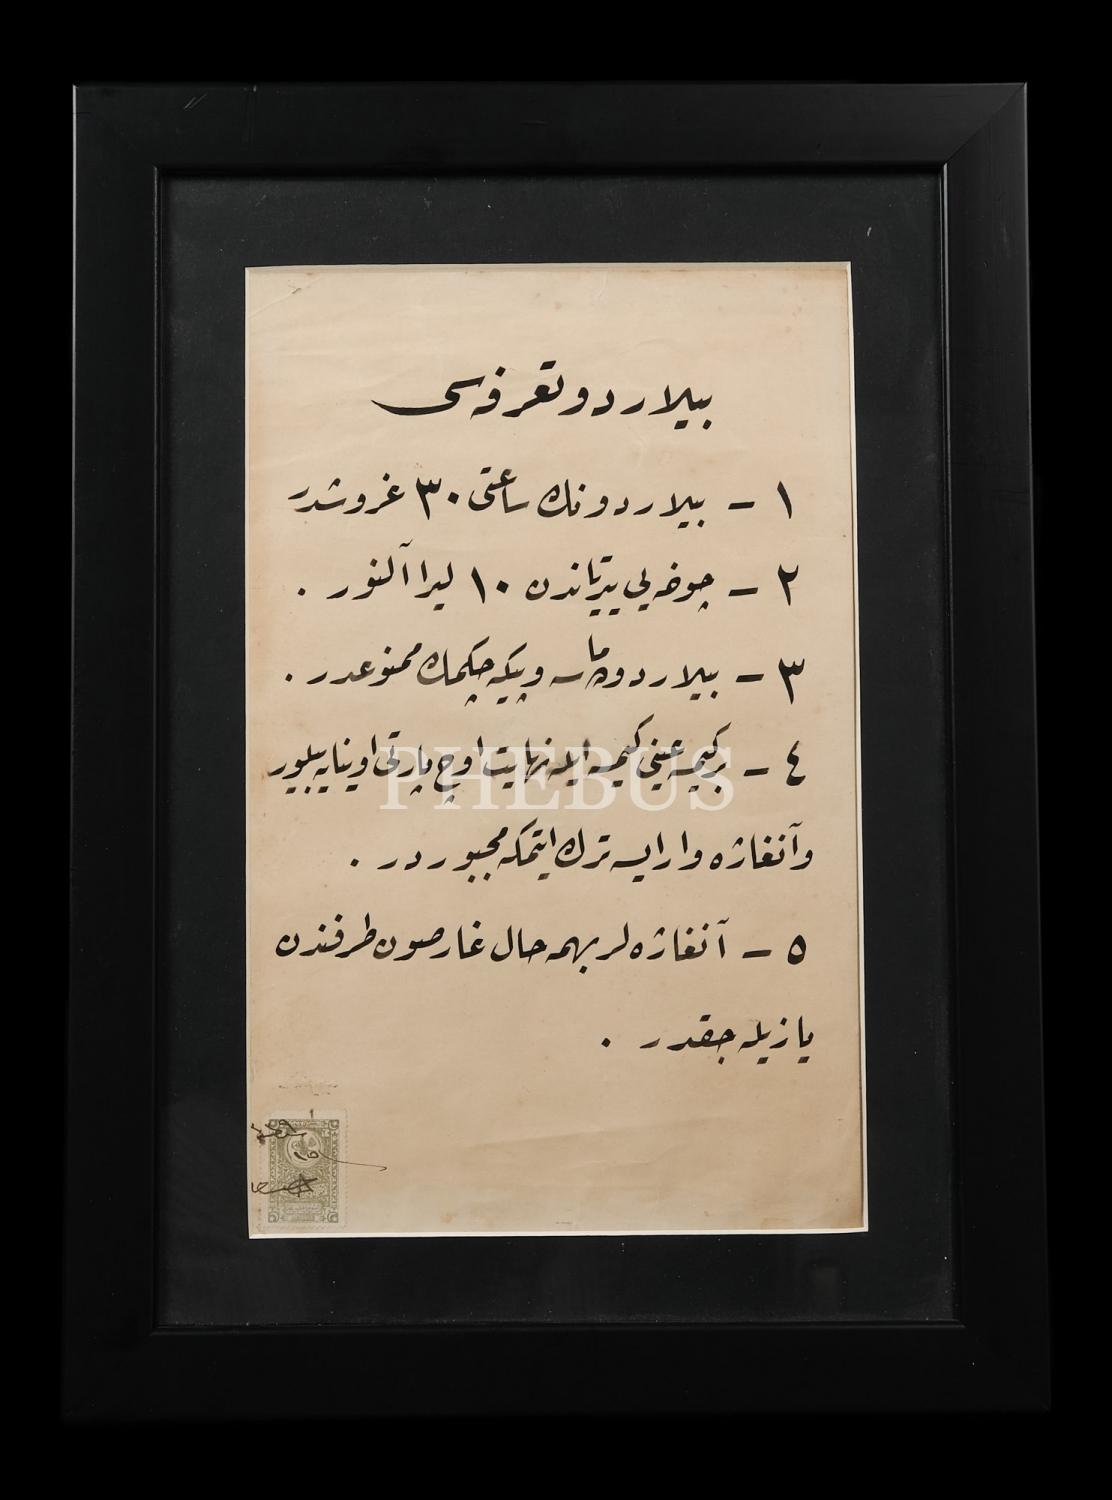 بيلاردو تعرفه‌سی
١ ـ بيلاردونك ساعتی ٣٠ غروشدر
٢ ـ چوخه‌يی ييرتاندن ١٠ ليرا آلنور .
٣ ـ بيلاردوده ماسه و پيكه چكمك ممنوعدر .
٤ ـ بر كيمسه عينی كيمسه ايله نهايت اوچ پارتی اوينايه‌بيلور
و آنغاژه وار ايسه ترك ايتمكه مجبوردر .
٥ ـ آنغاژه‌لر بهمه‌حال غارصون طرفندن
يازيله‌جقدر .
PHEBUS